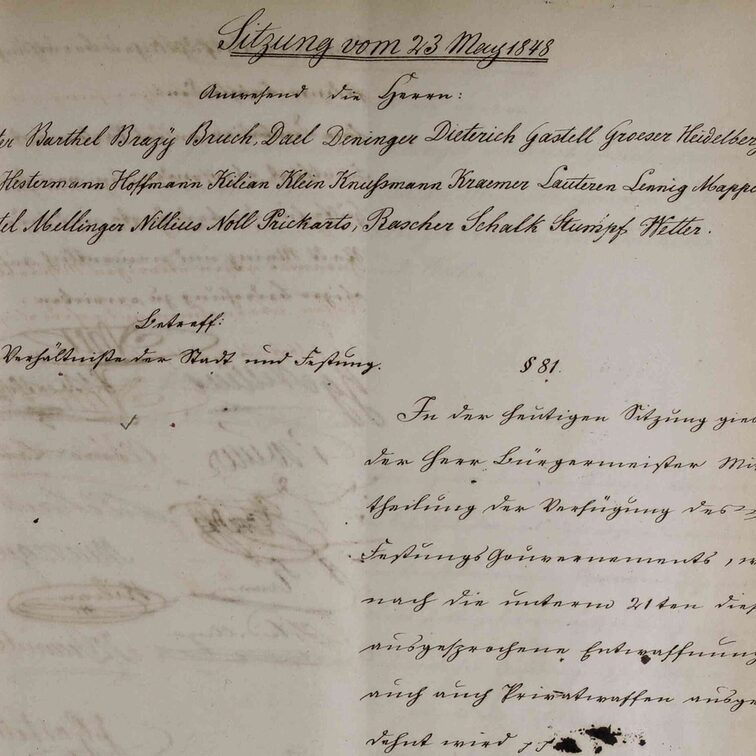 Sitzung vom 23 May 1848
Anwesend die Herrn:
Barthel Brazÿ Bruch, Dael Deninger Dieterich Gastell Groeser Heidelberg
Hestermann Hoffmann Kilian Klein Knußmann Kraemer Lauteren Lennig Mappe
tel Mellinger Nillius Noll Prickarts, Rascher Schalk Stumpf Wetter.
Betreff:
Verhältniße der Stadt und Festung.
§ 81.
In der heutigen Sitzung gie
der Herr Bürgermeister Mit
theilung der Verfügung des
Festungs Gouvernements, w
nach die unterm 21ten die
ausgesprochene Entwaffnung
auch auf Privatwaffen ausge
dehnt wird